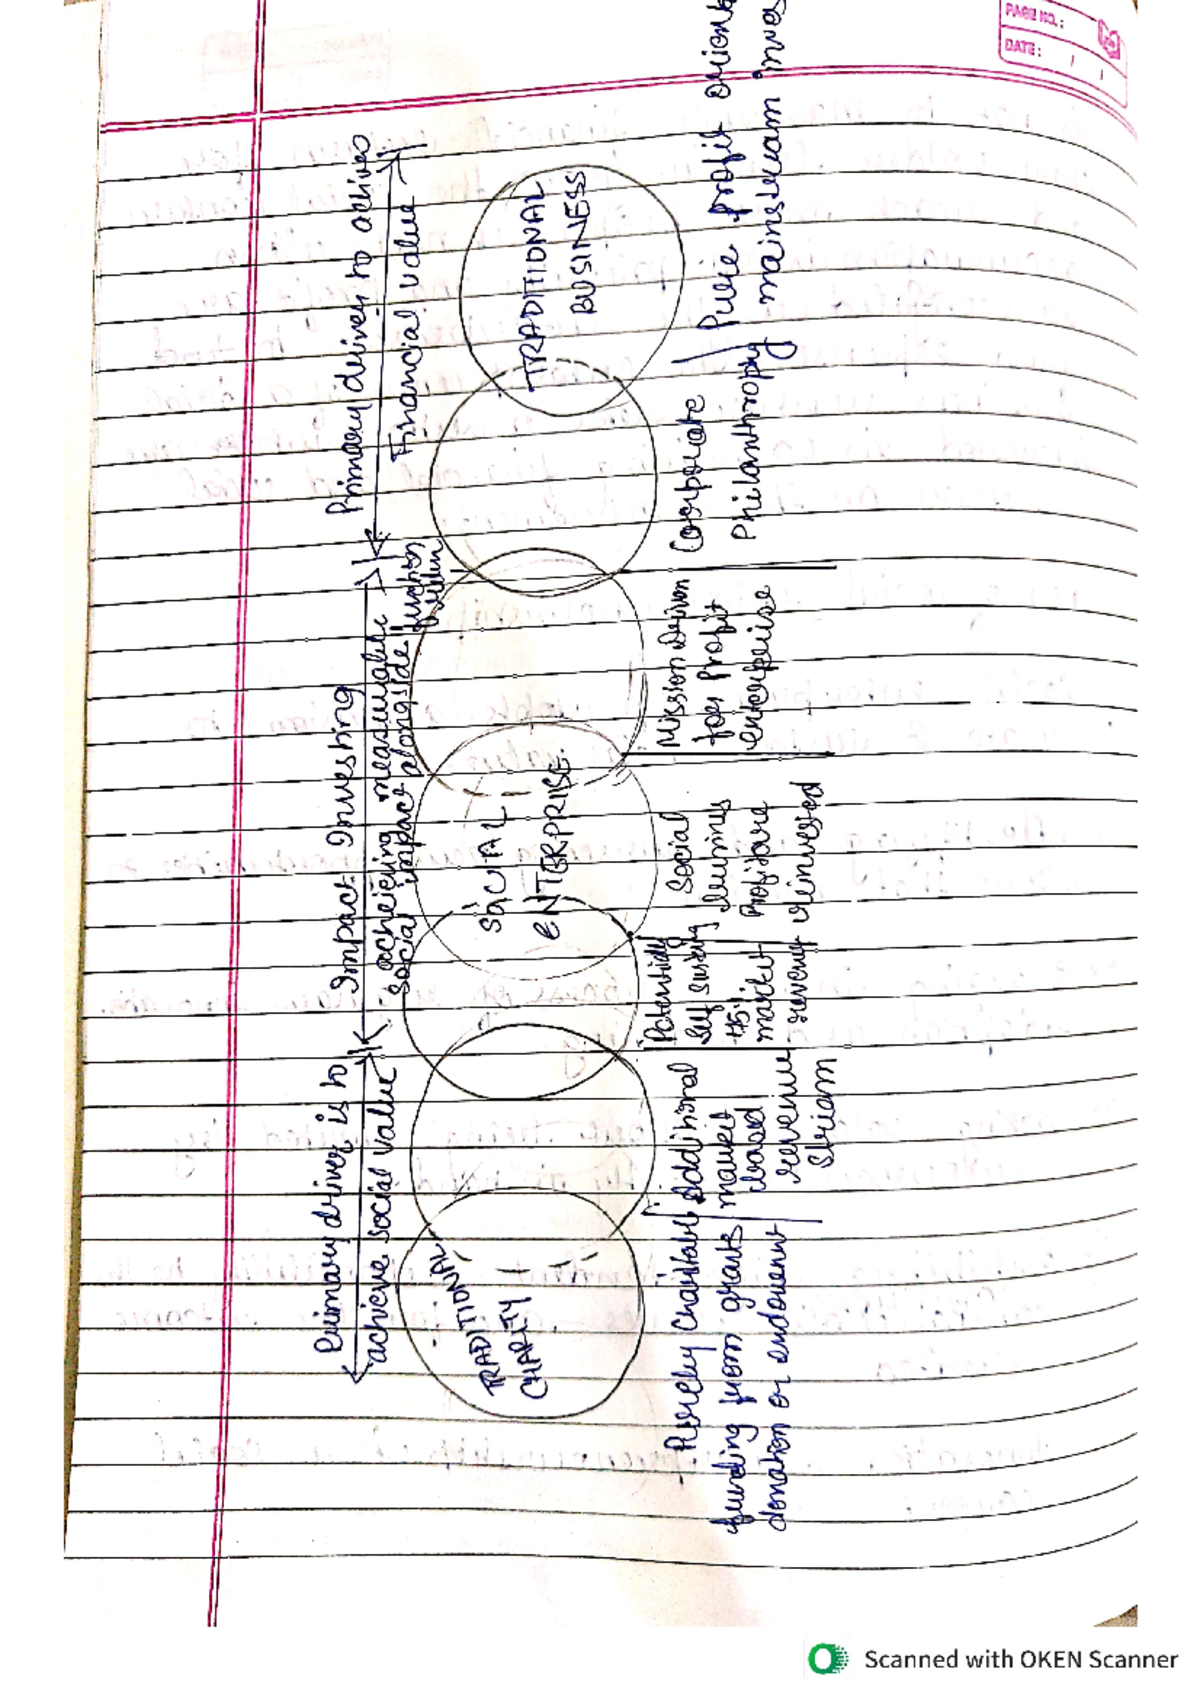 PAGE NO.:
DATE: / /
Primary driver is to
achieve social value
Impact Investing
acheiving measurable
social impact alongside
Primary driver to achives
Financial value
TRADITIONAL
CHARITY
SOCIAL
ENTERPRISE
TRADITIONAL
BUSINESS
Purely Charitable
funding from grants
donation or endowment
Additional
market
based
revenue
stream
Potentially
self
market
revenue
Social
Profit are
reinvested
Mission Driven
for Profit
enterprise
Corporate
Philanthrophy
Pure profit
mainstream
Scanned with OKEN Scanner